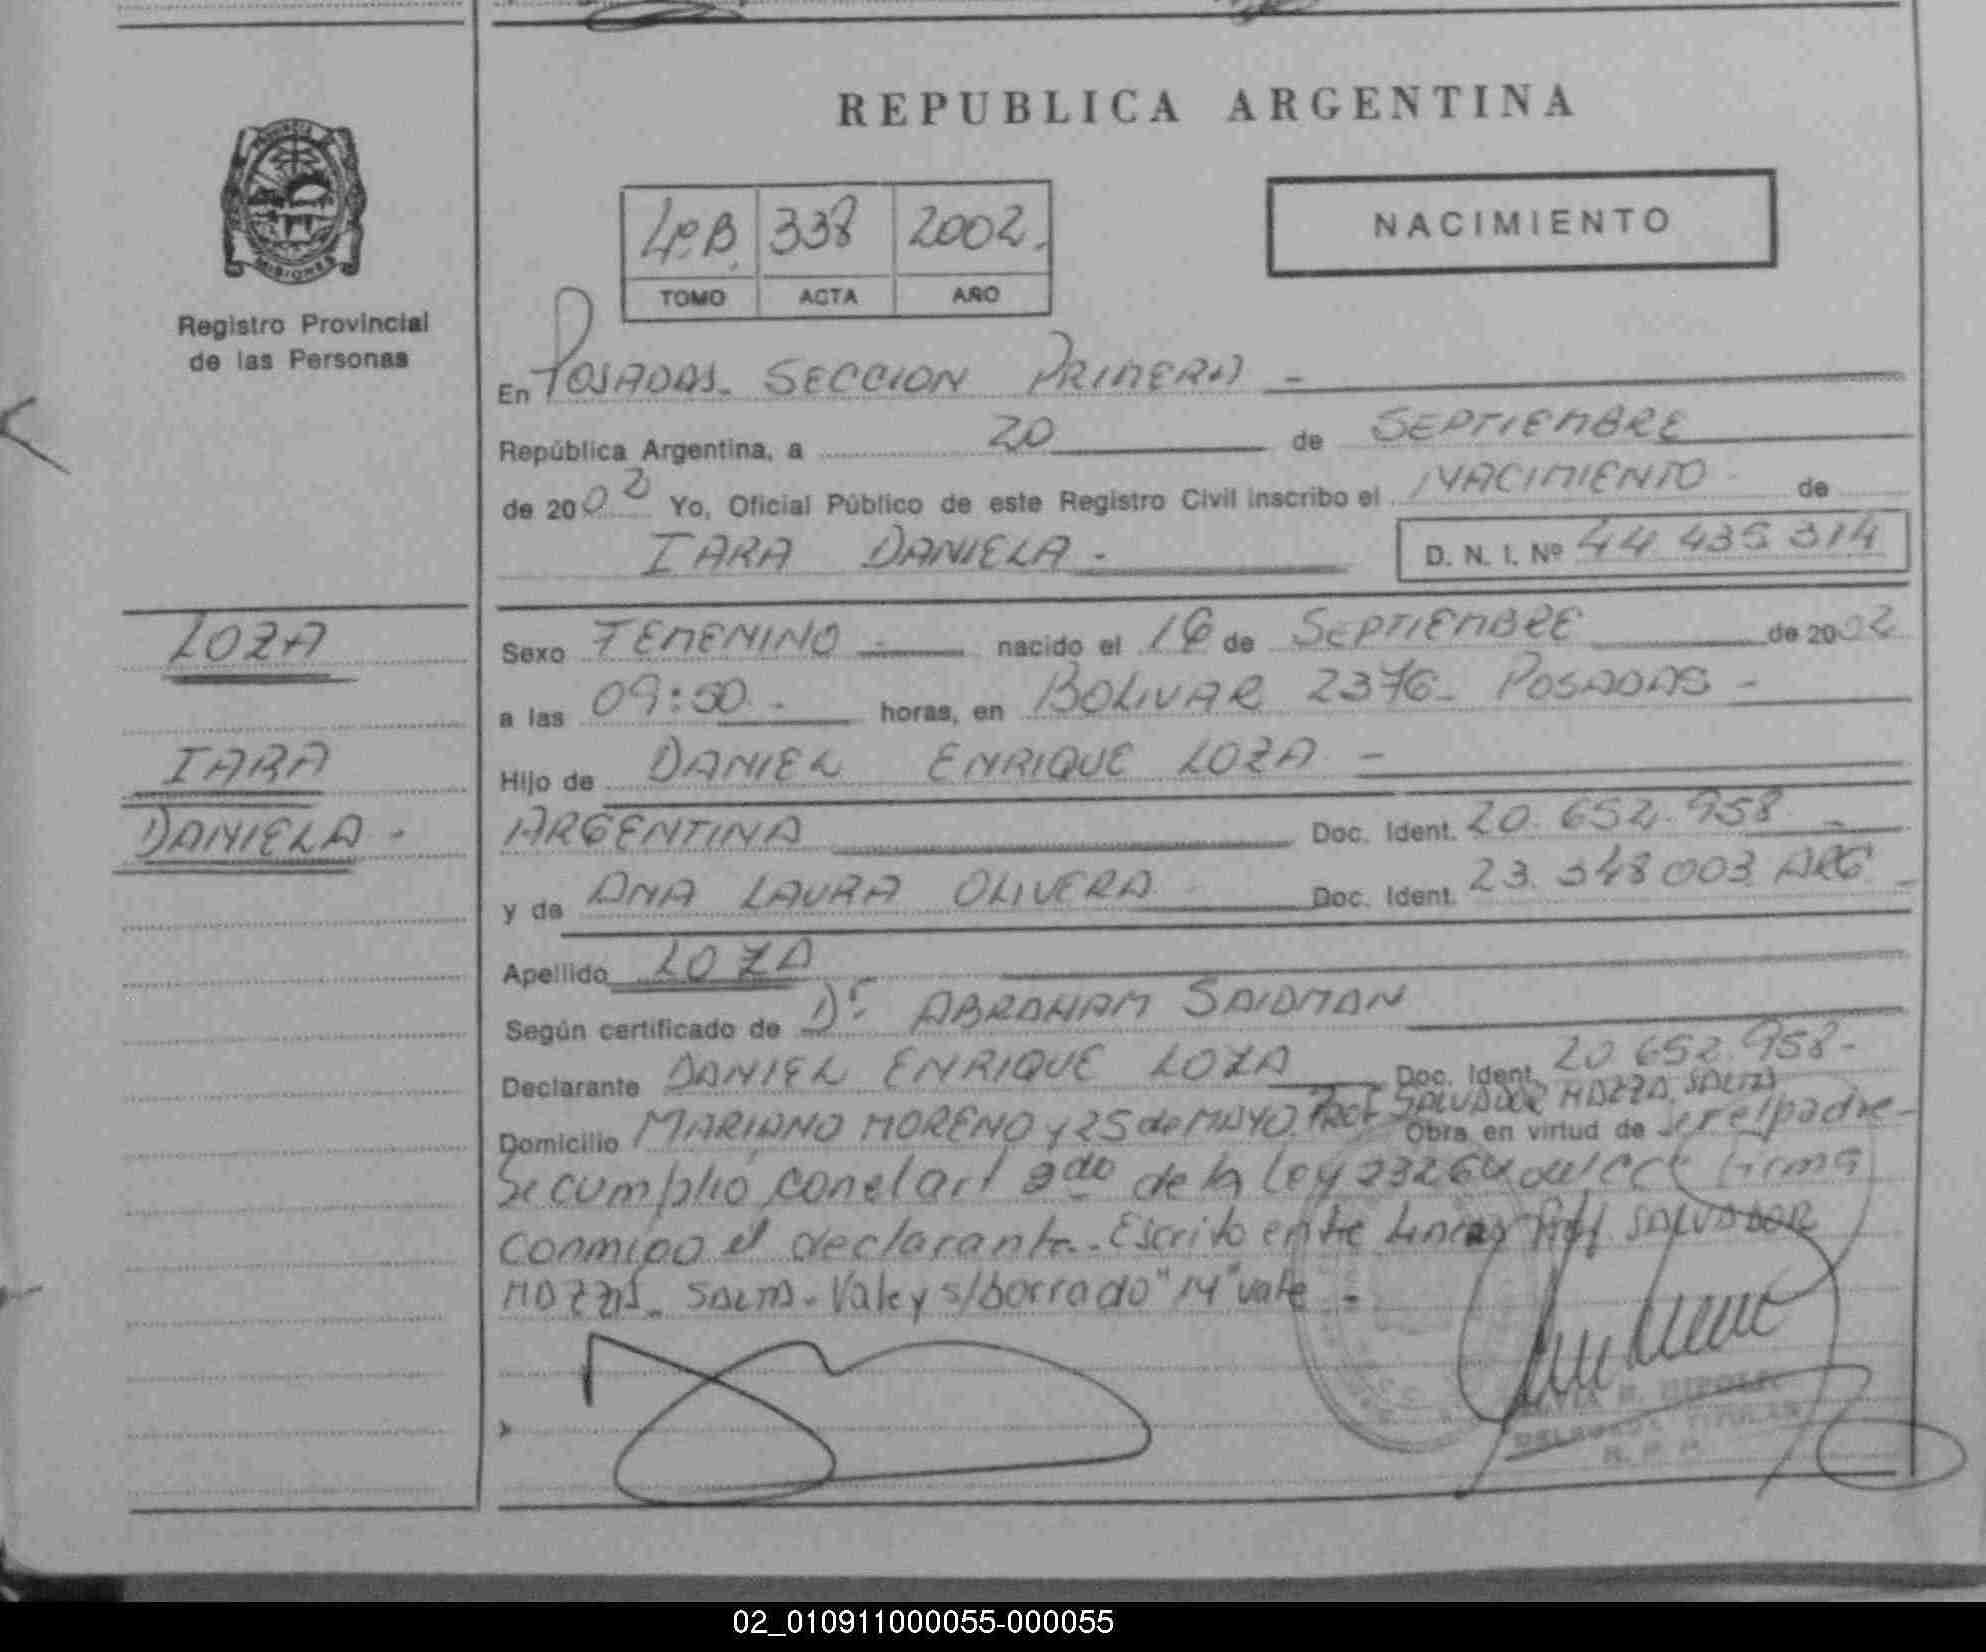 REPUBLICA ARGENTINA
MISIONES
Registro Provincial
de las Personas
4º B. 338 2002.
TOMO ACTA AÑO
NACIMIENTO
En POSADAS. SECCION PRIMERA -
República Argentina, a 20 de SEPTIEMBRE
de 2002 Yo, Oficial Público de este Registro Civil inscribo el NACIMIENTO de
IARA DANIELA - D. N. I. Nº 44 435 314
LOZA
IARA
DANIELA -
Sexo FEMENINO - nacido el 16 de SEPTIEMBRE de 2002
a las 09:50 - horas, en BOLIVAR 2376- POSADAS -
Hijo de DANIEL ENRIQUE LOZA -
ARGENTINA Doc. Ident. 20.652.958 -
y de ANA LAURA OLIVERA Doc. Ident. 23.348 003 ARG -
Apellido LOZA
Según certificado de Dr ABRAHAM SAIDMAN
Declarante DANIEL ENRIQUE LOZA Doc. Ident. 20 652.958-
Domicilio MARIANO MORENO y 25 de MAYO. PROF SALVADOR MAZZA. SALTA Obra en virtud de ser el padre-
Se cumplió con el art 2do de la Ley 23264 del CC firma
conmigo el declarante. Escrito entre lineas Prof. SALVADOR
MAZZA. SALTA. Vale y s/borrado "14" vale -
DELEGADA TITULAR
R. P. P.
02_010911000055-000055